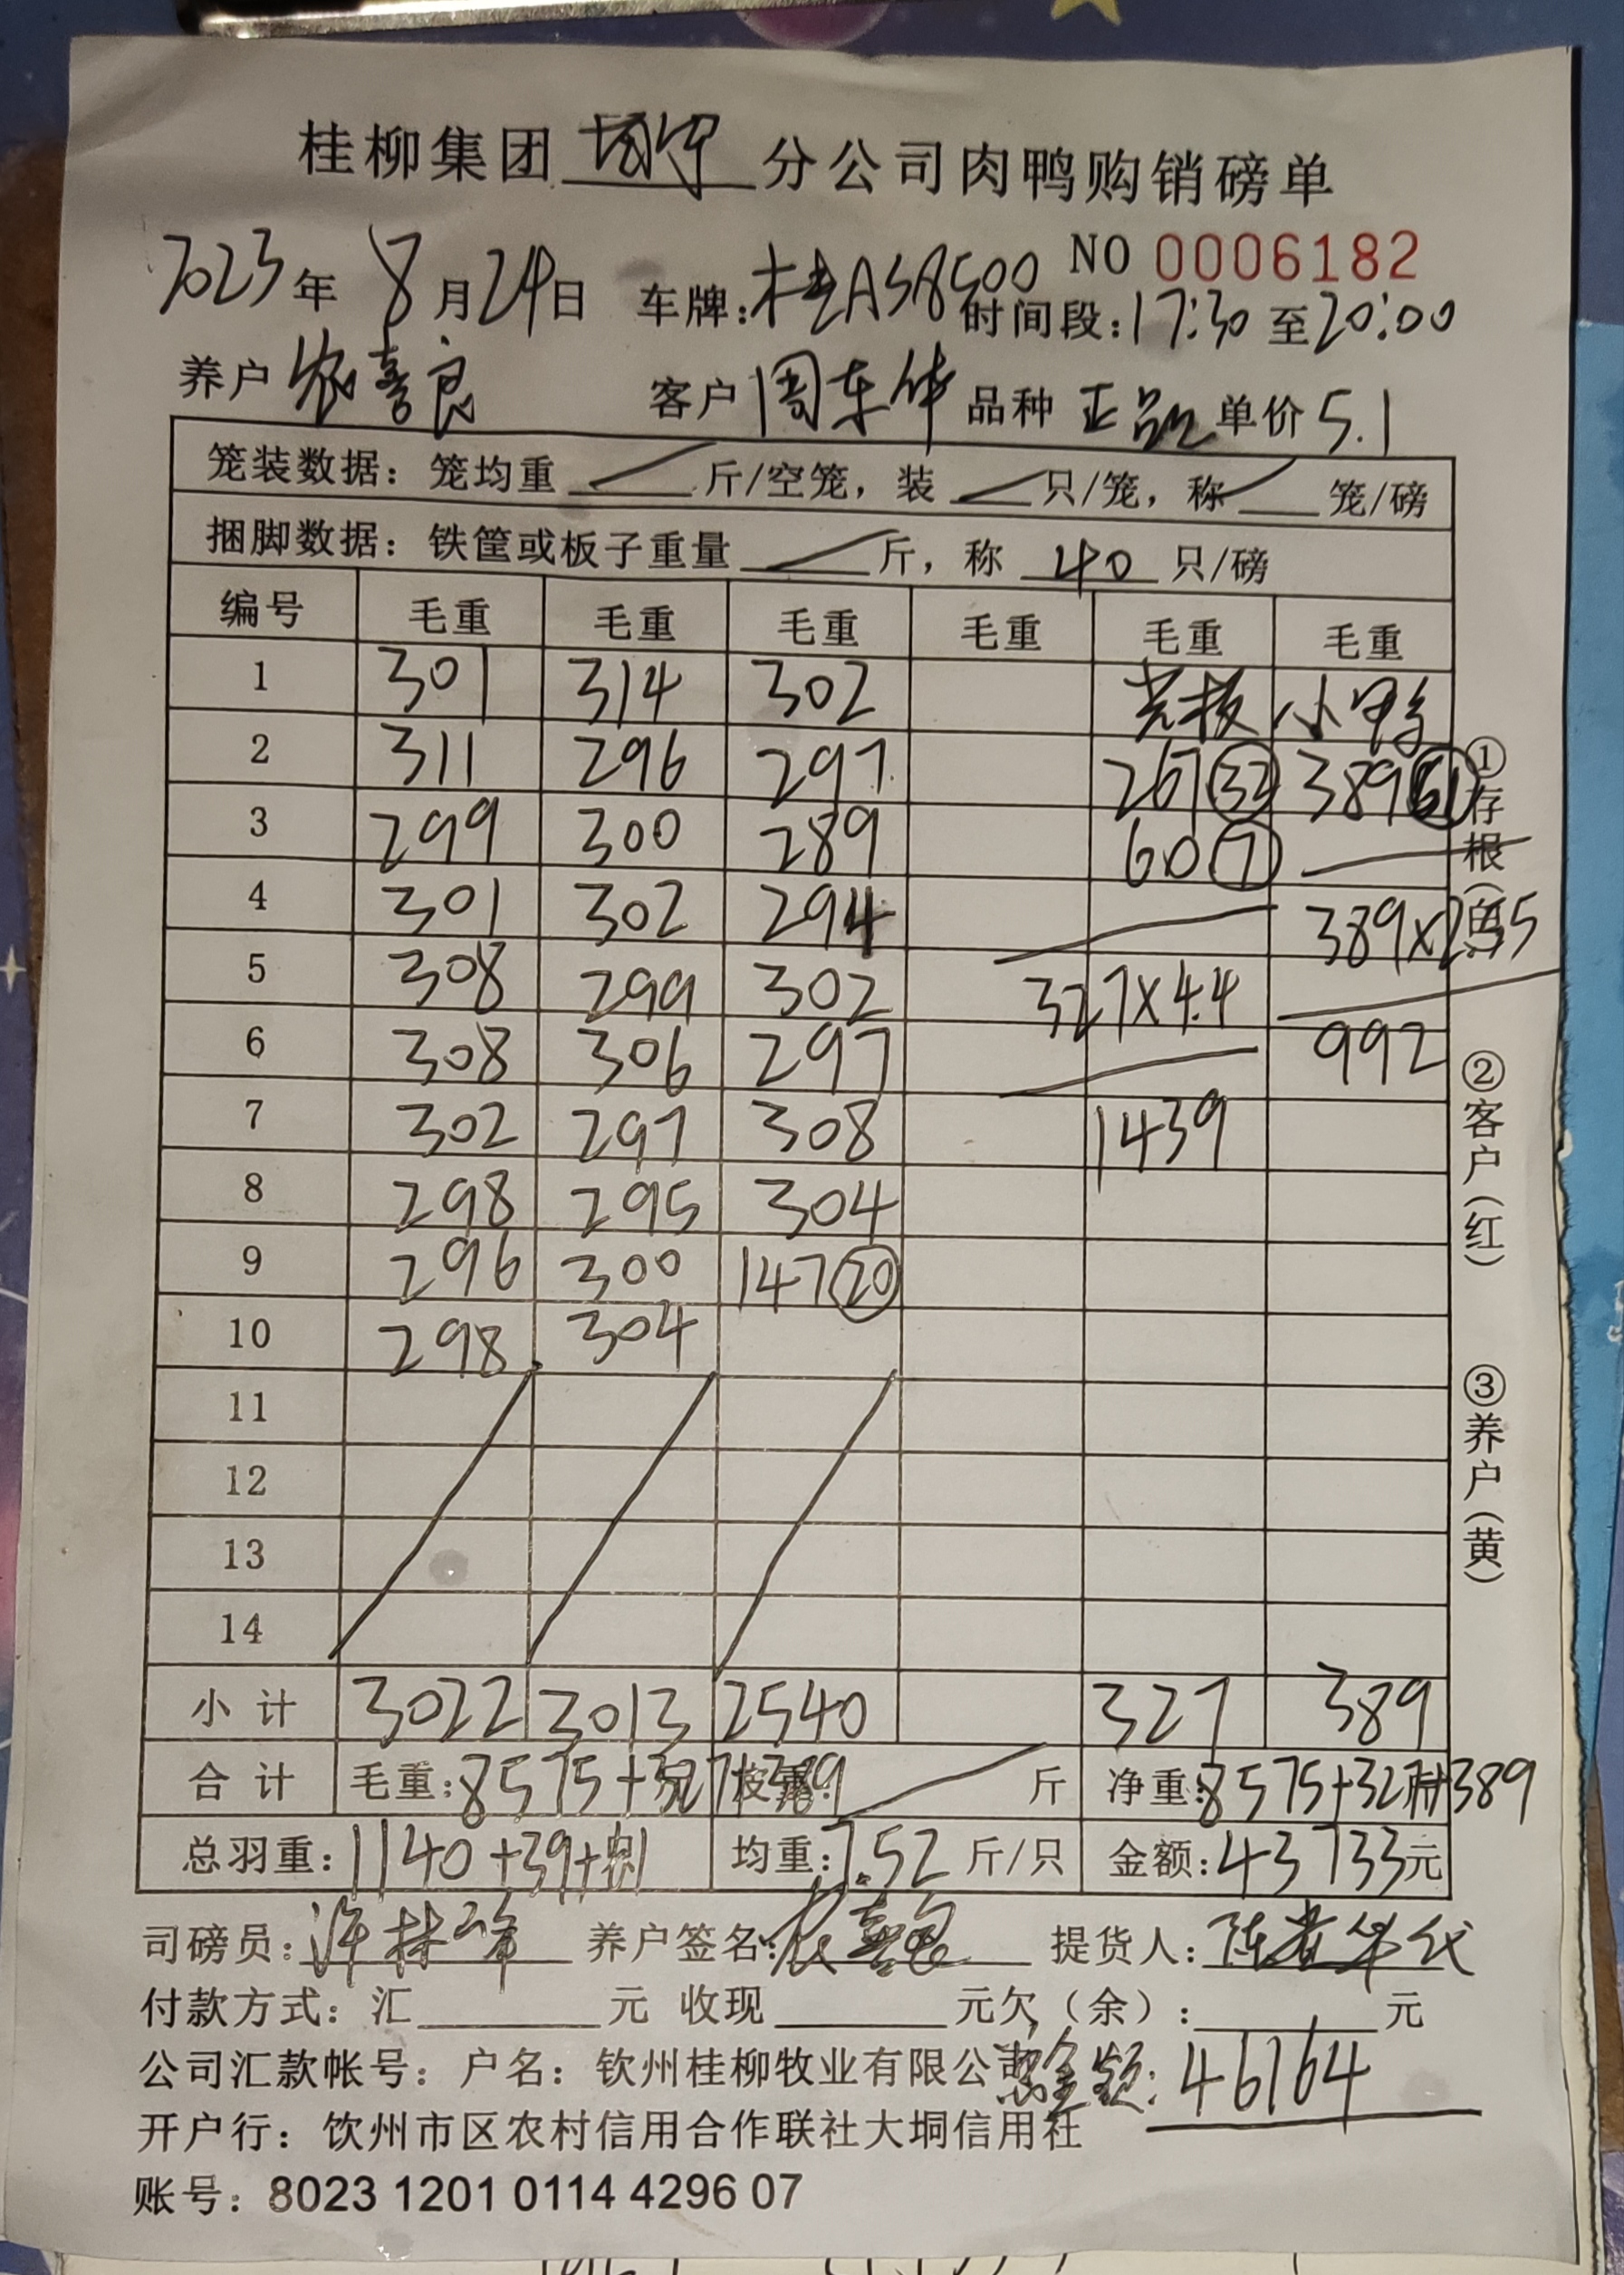 桂柳集团 分公司肉鸭购销磅单
NO 0006182
2023年 8月24日 车牌:桂A38500 时间段:17:30至20:00
养户 农喜良 客户 周东华 品种 正品 单价 5.1
笼装数据：笼均重 斤/空笼，装 只/笼，称 笼/磅
捆脚数据：铁筐或板子重量 斤，称 40 只/磅
编号 毛重 毛重 毛重 毛重 毛重 毛重
1 301 314 302 光板 小鸭
2 311 296 297 267 33 389
3 299 300 289 60 7
4 301 302 294 389×2.55
5 308 299 302 327×4.4
6 308 306 297 992
7 302 297 308 1439
8 298 295 304
9 296 300 147 20
10 298 304
11
12
13
14
小计 3022 3013 2540 327 389
合计 毛重:8575+327+389 斤 净重:8575+327+389
总羽重:1140+39+ 均重:7.52 斤/只 金额:43733元
司磅员: 许林 养户签名:农喜良 提货人: 代
付款方式：汇 元 收现 元欠（余）: 元
公司汇款帐号：户名：钦州桂柳牧业有限公司 总金额:46164
开户行：饮州市区农村信用合作联社大垌信用社
账号：8023 1201 0114 4296 07
①存根（白）
②客户（红）
③养户（黄）